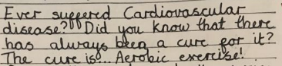 Ever suffered Cardiovascular
disease? Did you know that there
has always been a cure for it?
The cure is... Aerobic exercise!